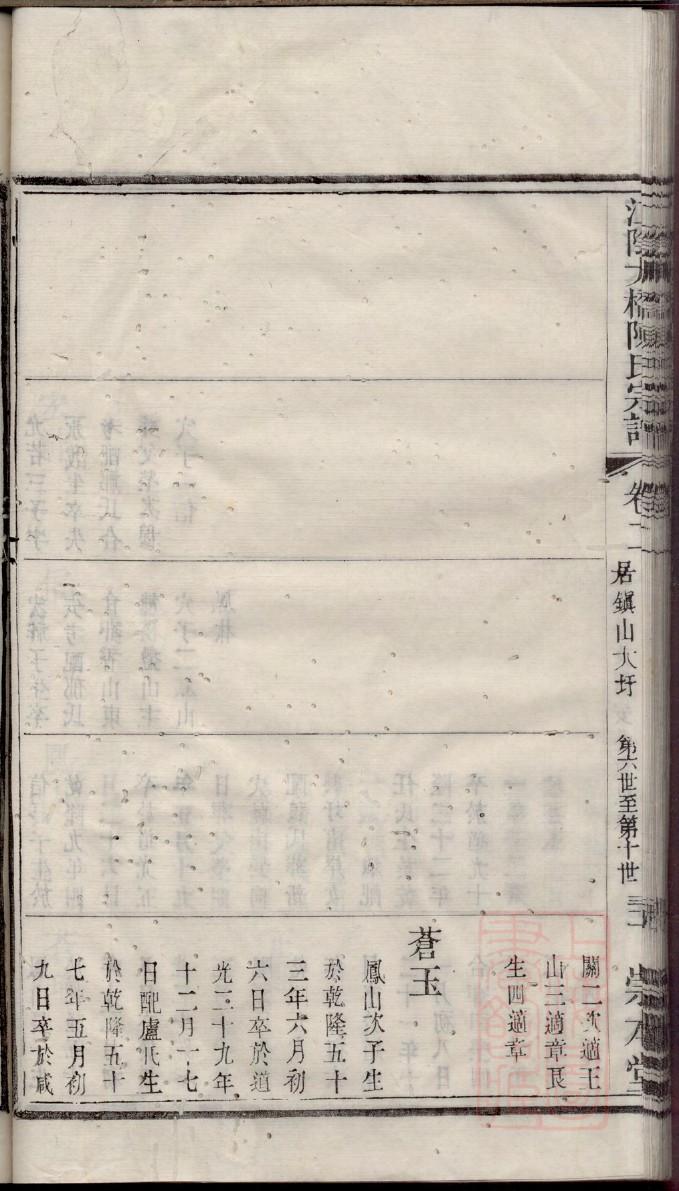 江陰大橋陳氏宗譜
卷二
居鎮山大圩
第六世至第十世
崇本堂
關二次適王
山三適章艮
生四適章
蒼玉
鳳山次子生
於乾隆五十
三年六月初
六日卒於道
光二十九年
十二月十七
日配盧氏生
於乾隆五十
七年五月初
九日卒於咸